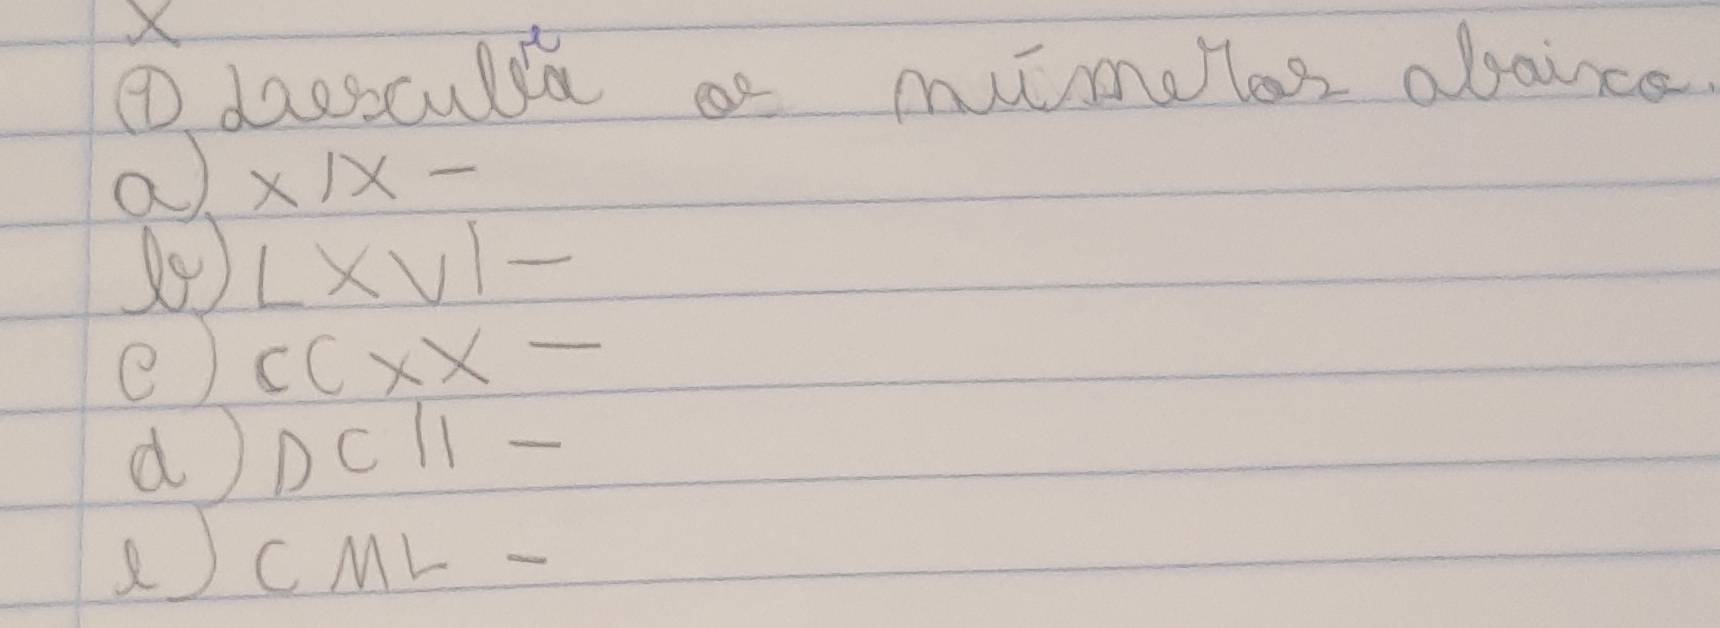 X
① daescubra os números abaixo.
a) XIX -
b) LXVI -
c) CCXX -
d) DCII -
e) CML -